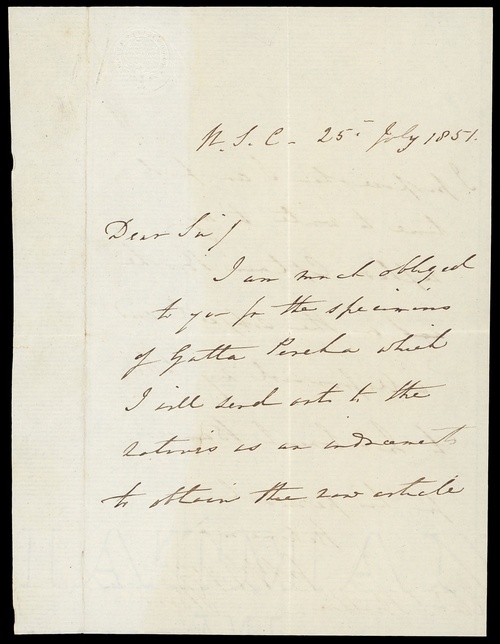 H. S. C - 25th July 1851.
Dear Sir /
I am much obliged
to you for the specimens
of Gutta Percha which
I will send out to the
natives as an inducement
to obtain the raw article